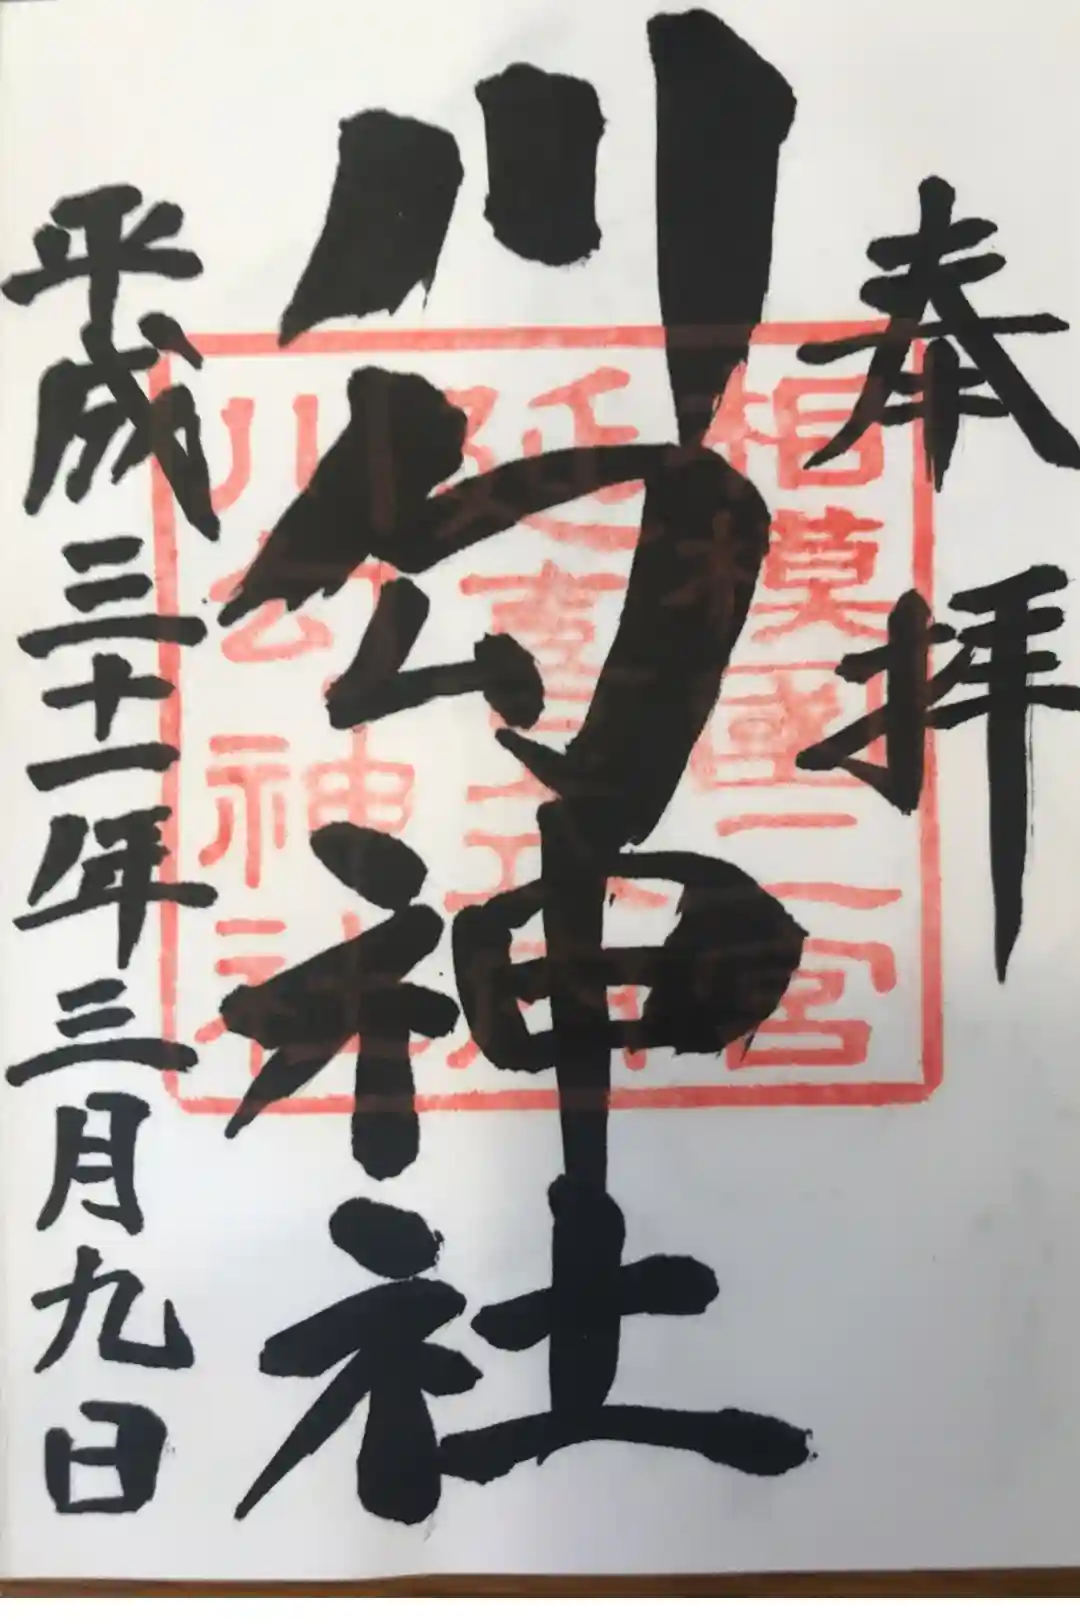 奉拝
川勾神社
平成三十一年三月九日
相模國二宮
延喜式内
川勾神社